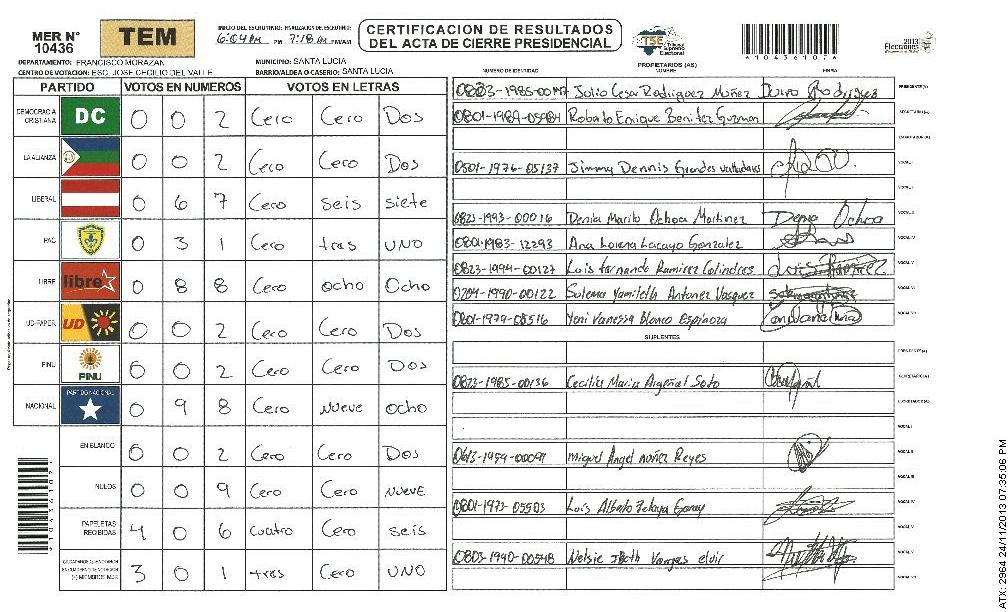 MER N° 10436
TEM
INICIO DEL ESCRUTINIO: FINALIZACION DE ESCRUTINIO:
6:04 PM PM 7:18 PM PM/AM
CERTIFICACION DE RESULTADOS
DEL ACTA DE CIERRE PRESIDENCIAL
TSE Tribunal Supremo Electoral
6 1 0 4 3 6 1 0 7 6
2013 Elecciones
DEPARTAMENTO: FRANCISCO MORAZAN
MUNICIPIO: SANTA LUCIA
CENTRO DE VOTACION: ESC. JOSE CECILIO DEL VALLE
BARRIO/ALDEA O CASERIO: SANTA LUCIA
PARTIDO VOTOS EN NUMEROS VOTOS EN LETRAS
DEMOCRACIA CRISTIANA DC 0 0 2 Cero Cero Dos
LA ALIANZA 0 0 2 Cero Cero Dos
LIBERAL 0 6 7 Cero seis siete
PAC 0 3 1 Cero tres UNO
LIBRE libre 0 8 8 Cero ocho Ocho
UD-FAPER UD 0 0 2 Cero Cero Dos
PINU PINU 0 0 2 Cero Cero Dos
NACIONAL PARTIDO NACIONAL 0 9 8 Cero nueve ocho
EN BLANCO 0 0 2 Cero Cero Dos
NULOS 0 0 9 Cero Cero nueve
PAPELETAS RECIBIDAS 4 0 6 cuatro Cero seis
(+) MIEMBROS MER 3 0 1 tres Cero UNO
NUMERO DE IDENTIDAD PROPIETARIOS (AS) NOMBRE FIRMA
Julio Cesar Rodriguez Nuñez PRESIDENTE(A)
0801-1989-05984 Roberto Enrique Benitez Guzman SECRETARIO(A)
ESCRUTADOR(A)
0801-1976-05137 Jimmy Dennis Grandes Valladares VOCAL I
VOCAL II
0823-1993-00016 Denia Marilo Ochoa Martinez Denia Ochoa VOCAL III
0801-1983-12293 Ana Lorena Lacayo Gonzalez VOCAL IV
0823-1994-00127 Luis Fernando Ramirez Colindres VOCAL V
0209-1990-00122 Sulema Yamileth Antunez Vasquez VOCAL VI
0801-1979-08516 Yeni Vanessa Blanco Espinoza VOCAL VII
SUPLENTES
PRESIDENTE(A)
0823-1985-00136 Cecilia Maria Argeñal Soto SECRETARIO(A)
ESCRUTADOR(A)
VOCAL I
Miguel Angel nuñez Reyes VOCAL II
VOCAL III
0801-1973-05503 Luis Alberto Zelaya Garay VOCAL IV
VOCAL V
0803-1990-00548 Nelsie Ibeth Vargas elvir
VOCAL VII
ATX: 2964 24/11/2013 07:35:06 PM